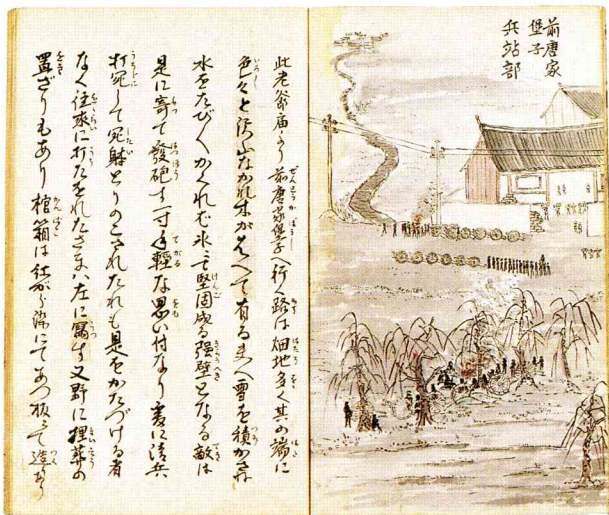 前唐家
堡子
兵站部
此老爺庙より前唐家堡子へ行く路は畑地多く其の端に
色々と沢山なかれ木がならへて有る夫へ雪を積かさね
水をたびたびかくれば氷て堅固成る強壁となる敵は
是に寄て發砲す一寸手輕な思い付なり爰に清兵
打死して死骸とりのこされたれも是をかたづける者
なく往来に打たをれたさま八左に寫す又野に埋葬の
置ざりもあり棺箱は
にてあつ板にて造なり